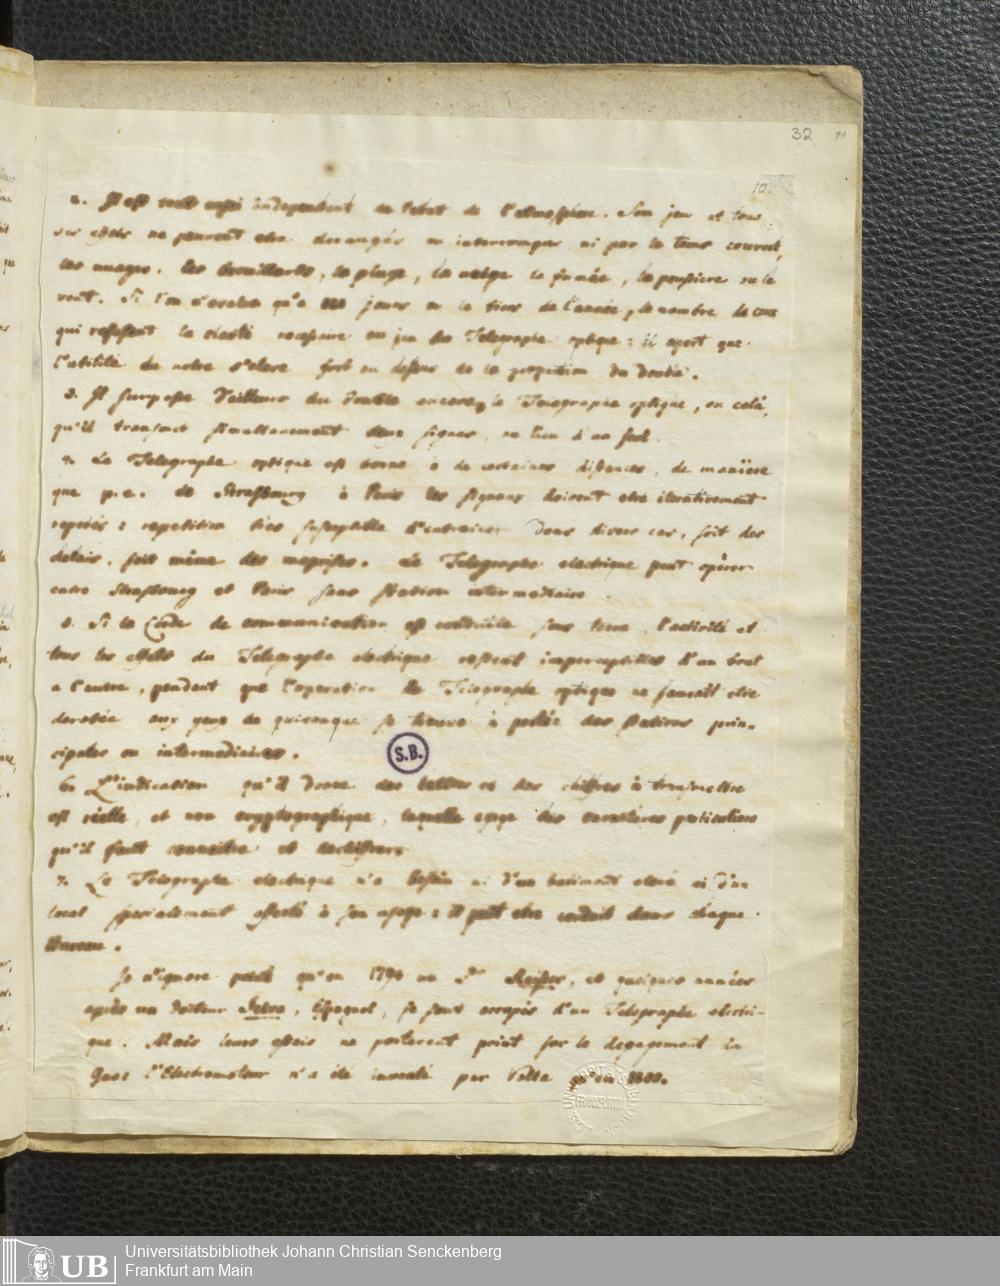 32
10.
2. Il est tout aussi independent de l'etat de l'atmosphere. Son jeu et tous
ses effets ne peuvent etre derangés ou interrompus ni par le tems couvert,
les nuages, les brouillards, la pluye, la neige la fumée, la poussiere ou le
vent. Si l'on n'evalue qu'a jours ou le tiers de l'année, le nombre de ceux
qui refusent la clarté necessaire au jeu du Telegraphe optique: il apert que
l'utilité de notre s'eleve fort au dessus de la proportion du double.
3. Il surpasse d'ailleurs du double encore, le Telegraphe optique, en celà,
qu'il transmet simultanement deux signes, au lieu d'un seul.
4. Le Telegraphe optique est borné à de certaines distances, de manière
que p. e. de Strasbourg à Paris les signaux doivent etre iterativement
repetés: repetition très susceptible d'entrainer dans divers cas, soit des
delais, soit même des meprises. Le Telegraphe electrique peut opèrer
entre Strasbourg et Paris sans station intermediaire
5. Si la Corde de communication est conduite sous terre, l'activité et
tous les effets du Telegraphe electrique restent imperceptibles d'un bout
a l'autre, pendant que l'operation du Telegraphe optique ne sauroit etre
derobée aux yeux de quiconque se trouve à portée des stations prin-
cipales ou intermediaires.
S.B.
6. L'indication qu'il donne des lettres et des chiffres à transmettre
est réelle, et non cryptographique, laquelle exige des caractères particuliers
qu'il faut connoitre et dechiffrer.
7. Le Telegraphe electrique n'a besoin ni d'un batiment elevé ni d'un
local specialement affecté à son usage: il peut etre conduit dans chaque
Bureau.
Je n'ignore point qu'en 1794 un Sr Reisser, et quelques années
après un docteur Salva, Espagnol, se sont occupés d'un Telegraphe electri-
que. Mais leurs essais ne porterent point sur le degagement du
Gaz: l'Electromoteur n'a été inventé par Volta qu'en 1800.
UB
Universitätsbibliothek Johann Christian Senckenberg
Frankfurt am Main